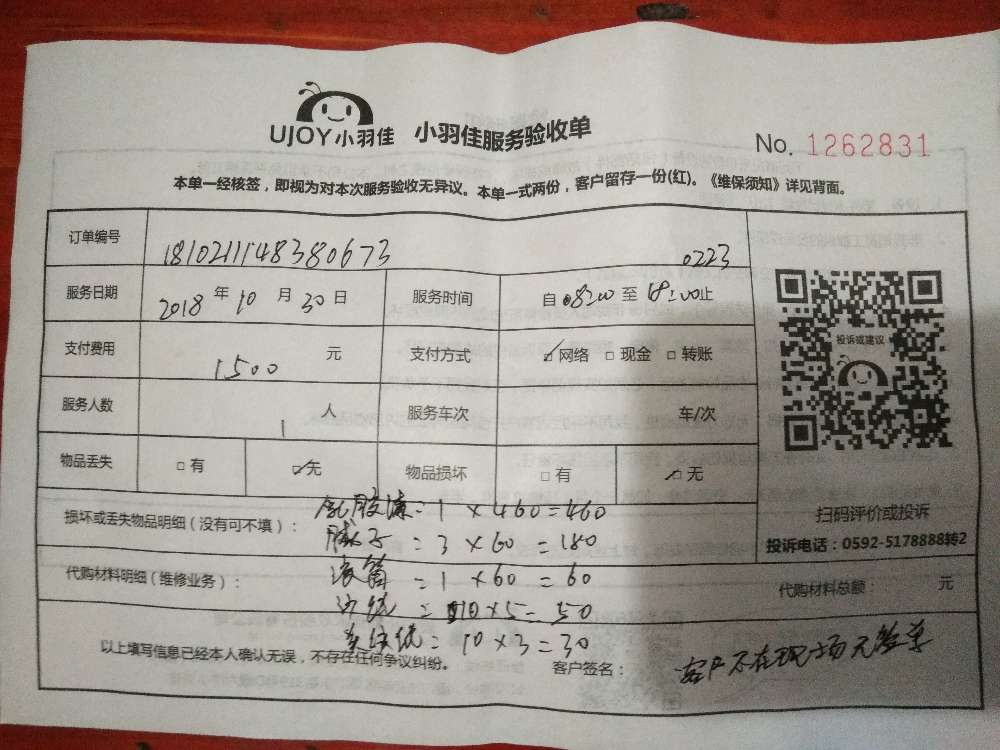 UJOY小羽佳 小羽佳服务验收单
No. 1262831
本单一经核签，即视为对本次服务验收无异议。本单一式两份，客户留存一份(红)。《维保须知》详见背面。
订单编号 1810211148380673 0223
服务日期 2018 年 10 月 30 日 服务时间 自 08:00 至 18:00止
支付费用 1500 元 支付方式 网络 现金 转账
服务人数 1 人 服务车次 车/次
物品丢失 有 无 物品损坏 有 无
投诉或建议
扫码评价或投诉
投诉电话：0592-5178888转2
损坏或丢失物品明细（没有可不填）： 乳胶漆=1×460=460
腻子=3×60=180
代购材料明细（维修业务）： 滚筒=1×60=60
代购材料总额： 元
=10×5=50
=10×3=30
以上填写信息已经本人确认无误，不存在任何争议纠纷。
客户签名： 客户不在现场无签单